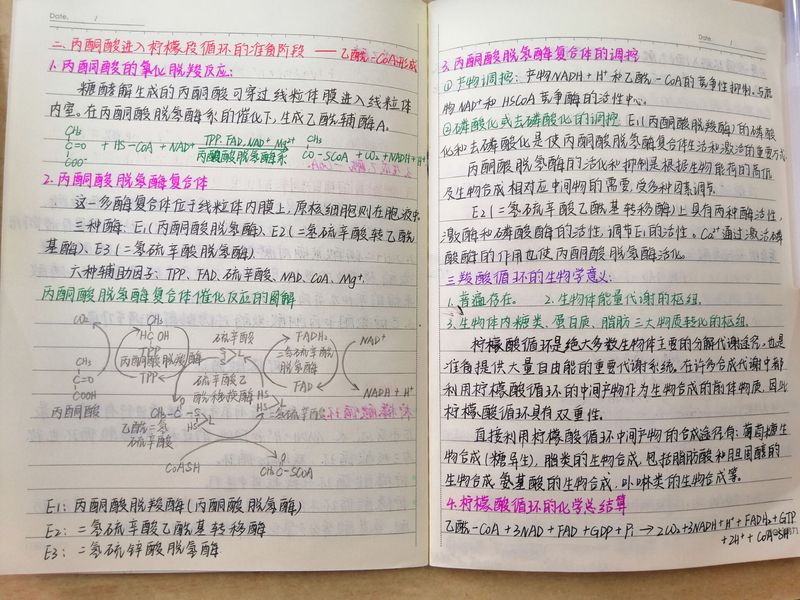 Date. /
二、丙酮酸进入柠檬酸循环的准备阶段 —— 乙酰-CoA形成
1. 丙酮酸的氧化脱羧反应:
糖酵解生成的丙酮酸可穿过线粒体膜进入线粒体
内室。在丙酮酸脱氢酶系的催化下,生成乙酰辅酶A。
CH₃ C=O COO⁻ + HS-CoA + NAD⁺ TPP. FAD. NAD⁺ Mg²⁺ 丙酮酸脱氢酶系 CH₃ CO-SCoA + CO₂ + NADH + H⁺
2. 丙酮酸脱氢酶复合体
这一多酶复合体位于线粒体内膜上,原核细胞则在胞液中。
三种酶、E₁(丙酮酸脱氢酶)、E2(二氢硫辛酸转乙酰
基酶)、E3(二氢硫辛酸脱氢酶)
六种辅助因子: TPP、FAD、硫辛酸、NAD、CoA、Mg⁺.
丙酮酸脱氢酶复合体催化反应的图解
CO₂
CH₃
HC OH
TPP
硫辛酸
S
S
L
FADH₂
NAD⁺
CH₃
C=O
COOH
丙酮酸脱羧酶
二氢硫辛酸
脱氢酶
TPP
硫辛酸乙
酰移换酶
FAD
NADH + H⁺
丙酮酸
CH₃-C-S
O
HS
L
HS
HS
L
二氢硫辛酸
乙酰二氢
硫辛酸
CoASH
O
CH₃C-SCoA
E1: 丙酮酸脱羧酶(丙酮酸脱氢酶)
E2: 二氢硫辛酸乙酰基转移酶
E3: 二氢硫锌酸脱氢酶
Date. /
3. 丙酮酸脱氢酶复合体的调控
① 产物调控: 产物NADH + H⁺和乙酰-CoA的竞争性抑制。与底
物NAD⁺和HSCoA竞争酶的活性中心。
②磷酸化或去磷酸化的调控 E₁(丙酮酸脱羧酶)的磷酸
化和去磷酸化是使丙酮酸脱氢酶复合体失活和激活的重要方式
丙酮酸脱氢酶的活化和抑制是根据生物能荷的高低
及生物合成相对应中间物的需要,受多种因素调节
E2(二氢硫辛酸乙酰基转移酶)上具有两种酶活性,
激酶和磷酸酶的活性,调节E₁的活性。Ca²⁺通过激活磷
酸酶的作用也使丙酮酸脱氢酶活化
三羧酸循环的生物学意义:
1. 普遍存在. 2. 生物体能量代谢的枢纽.
3. 生物体内糖类、蛋白质、脂肪三大物质转化的枢纽.
柠檬酸循环是绝大多数生物体主要的分解代谢途径,也是
准备提供大量自由能的重要代谢系统,在许多合成代谢中都
利用柠檬酸循环的中间产物作为生物合成的前体物质,因此
柠檬酸循环具有双重性。
直接利用柠檬酸循环中间产物的合成途径有: 葡萄糖生
物合成(糖异生),脂类的生物合成,包括脂肪酸和胆固醇的
生物合成,氨基酸的生物合成,卟啉类的生物合成等。
4. 柠檬酸循环的化学总结算
乙酰-CoA + 3NAD + FAD + GDP + Pi → 2CO₂ + 3NADH + H⁺ + FADH₂ + GTP
+ 2H⁺ + CoA-SH